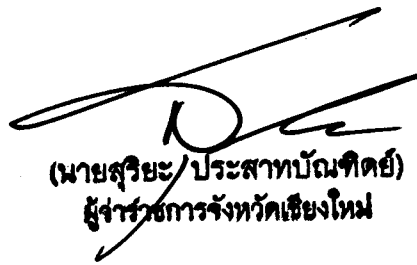 (นายสุริยะ ประสาทบัณฑิตย์)
ผู้ว่าราชการจังหวัดเชียงใหม่